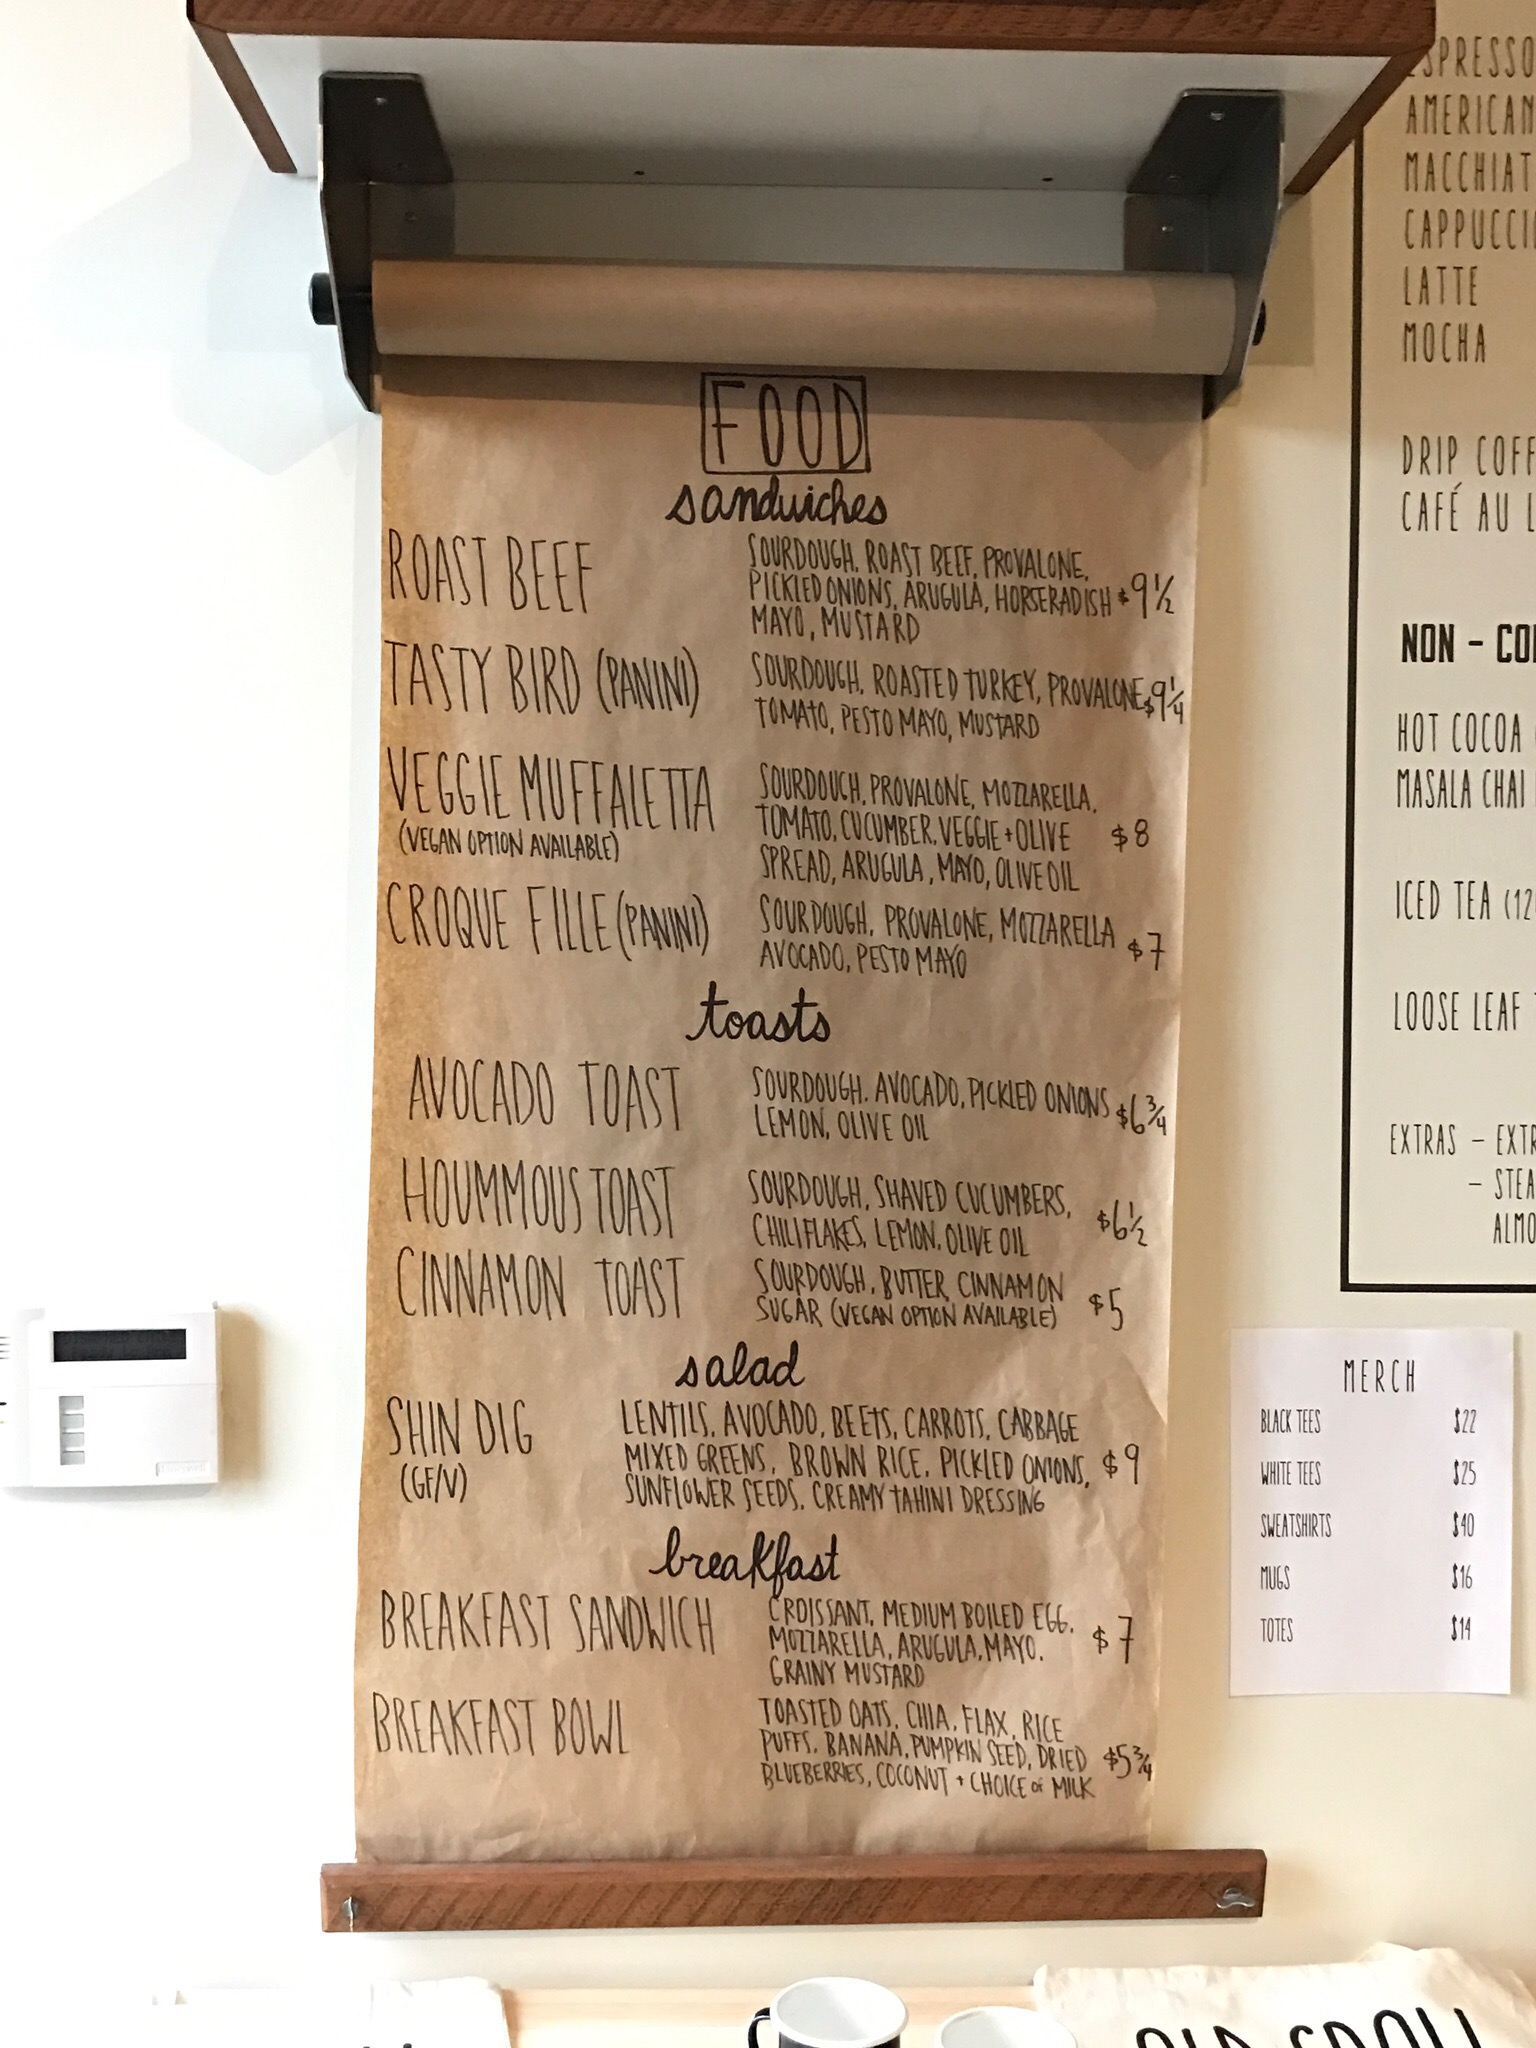 FOOD
sandwiches
ROAST BEEF
SOURDOUGH, ROAST BEEF, PROVALONE,
PICKLED ONIONS, ARUGULA, HORSERADISH $9 1/2
MAYO, MUSTARD
TASTY BIRD (PANINI)
SOURDOUGH, ROASTED TURKEY, PROVALONE $9 1/4
TOMATO, PESTO MAYO, MUSTARD
VEGGIE MUFFALETTA
(VEGAN OPTION AVAILABLE)
SOURDOUGH, PROVALONE, MOZZARELLA,
TOMATO, CUCUMBER, VEGGIE + OLIVE $8
SPREAD, ARUGULA, MAYO, OLIVE OIL
CROQUE FILLE (PANINI)
SOURDOUGH, PROVALONE, MOZZARELLA $7
AVOCADO, PESTO MAYO
toasts
AVOCADO TOAST
SOURDOUGH, AVOCADO, PICKLED ONIONS $6 3/4
LEMON, OLIVE OIL
HOUMMOUS TOAST
SOURDOUGH, SHAVED CUCUMBERS, $6 1/2
CHILI FLAKES, LEMON, OLIVE OIL
CINNAMON TOAST
SOURDOUGH, BUTTER, CINNAMON $5
SUGAR (VEGAN OPTION AVAILABLE)
salad
SHIN DIG
(GF/V)
LENTILS, AVOCADO, BEETS, CARROTS, CABBAGE
MIXED GREENS, BROWN RICE, PICKLED ONIONS, $9
SUNFLOWER SEEDS, CREAMY TAHINI DRESSING
breakfast
BREAKFAST SANDWICH
CROISSANT, MEDIUM BOILED EGG,
MOZZARELLA, ARUGULA, MAYO, $7
GRAINY MUSTARD
BREAKFAST BOWL
TOASTED OATS, CHIA, FLAX, RICE
PUFFS, BANANA, PUMPKIN SEED, DRIED $5 3/4
BLUEBERRIES, COCONUT + CHOICE of MILK
ESPRESSO
AMERICAN
MACCHIAT
CAPPUCCI
LATTE
MOCHA
DRIP COFF
CAFÉ AU L
NON - CO
HOT COCOA
MASALA CHAI
ICED TEA (12
LOOSE LEAF
EXTRAS - EXTR
- STEA
ALMO
MERCH
BLACK TEES $22
WHITE TEES $25
SWEATSHIRTS $40
MUGS $16
TOTES $14